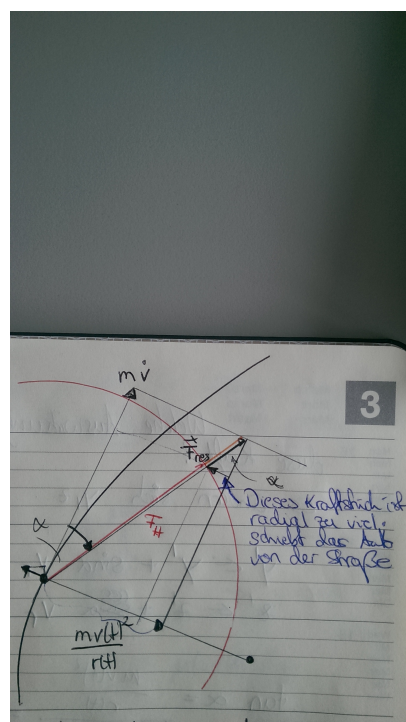 3
m v̇
F_res
α
α
F_H
Dieses Kraftstück ist
radial zu viel:
schiebt das Auto
von der Straße
mv(t)²
r(t)